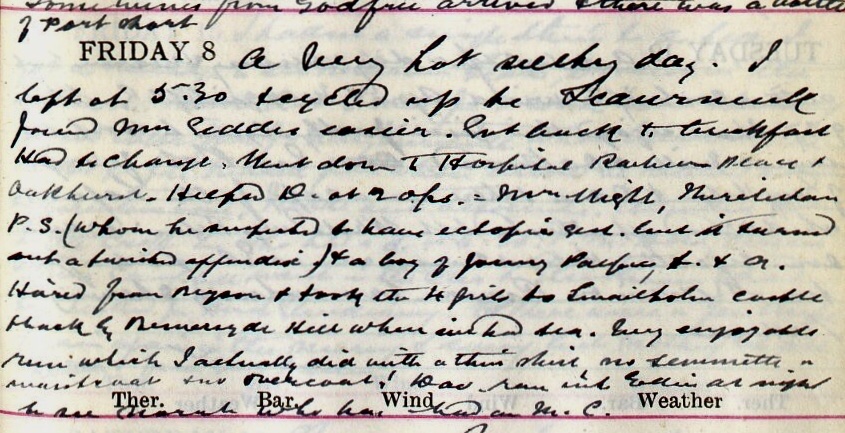 some wines from Godfree arrived & there was a bottle
of Port short
FRIDAY 8 A very hot sultry day. I
left at 5.30 & cycled up to
found Mrs Geddes easier. Got back to breakfast
Had to change. Went down to Hospital Place &
Oakhurst. Helped D. at 2 ops. = Mrs
P.S. (whom he suspected to have ectopic gest. but it turned
out a twisted appendix) & a boy of Jimmy T. & A.
Hired from Bryson & took the 4 girls to Smailholm Castle
& back by Bemersyde Hill where we had tea. Very enjoyable
run which I actually did with a thin shirt no semmitt, no
waistcoat and overcoat! Dav ran into at night
to see who has had a M.C.
Ther. Bar. Wind Weather